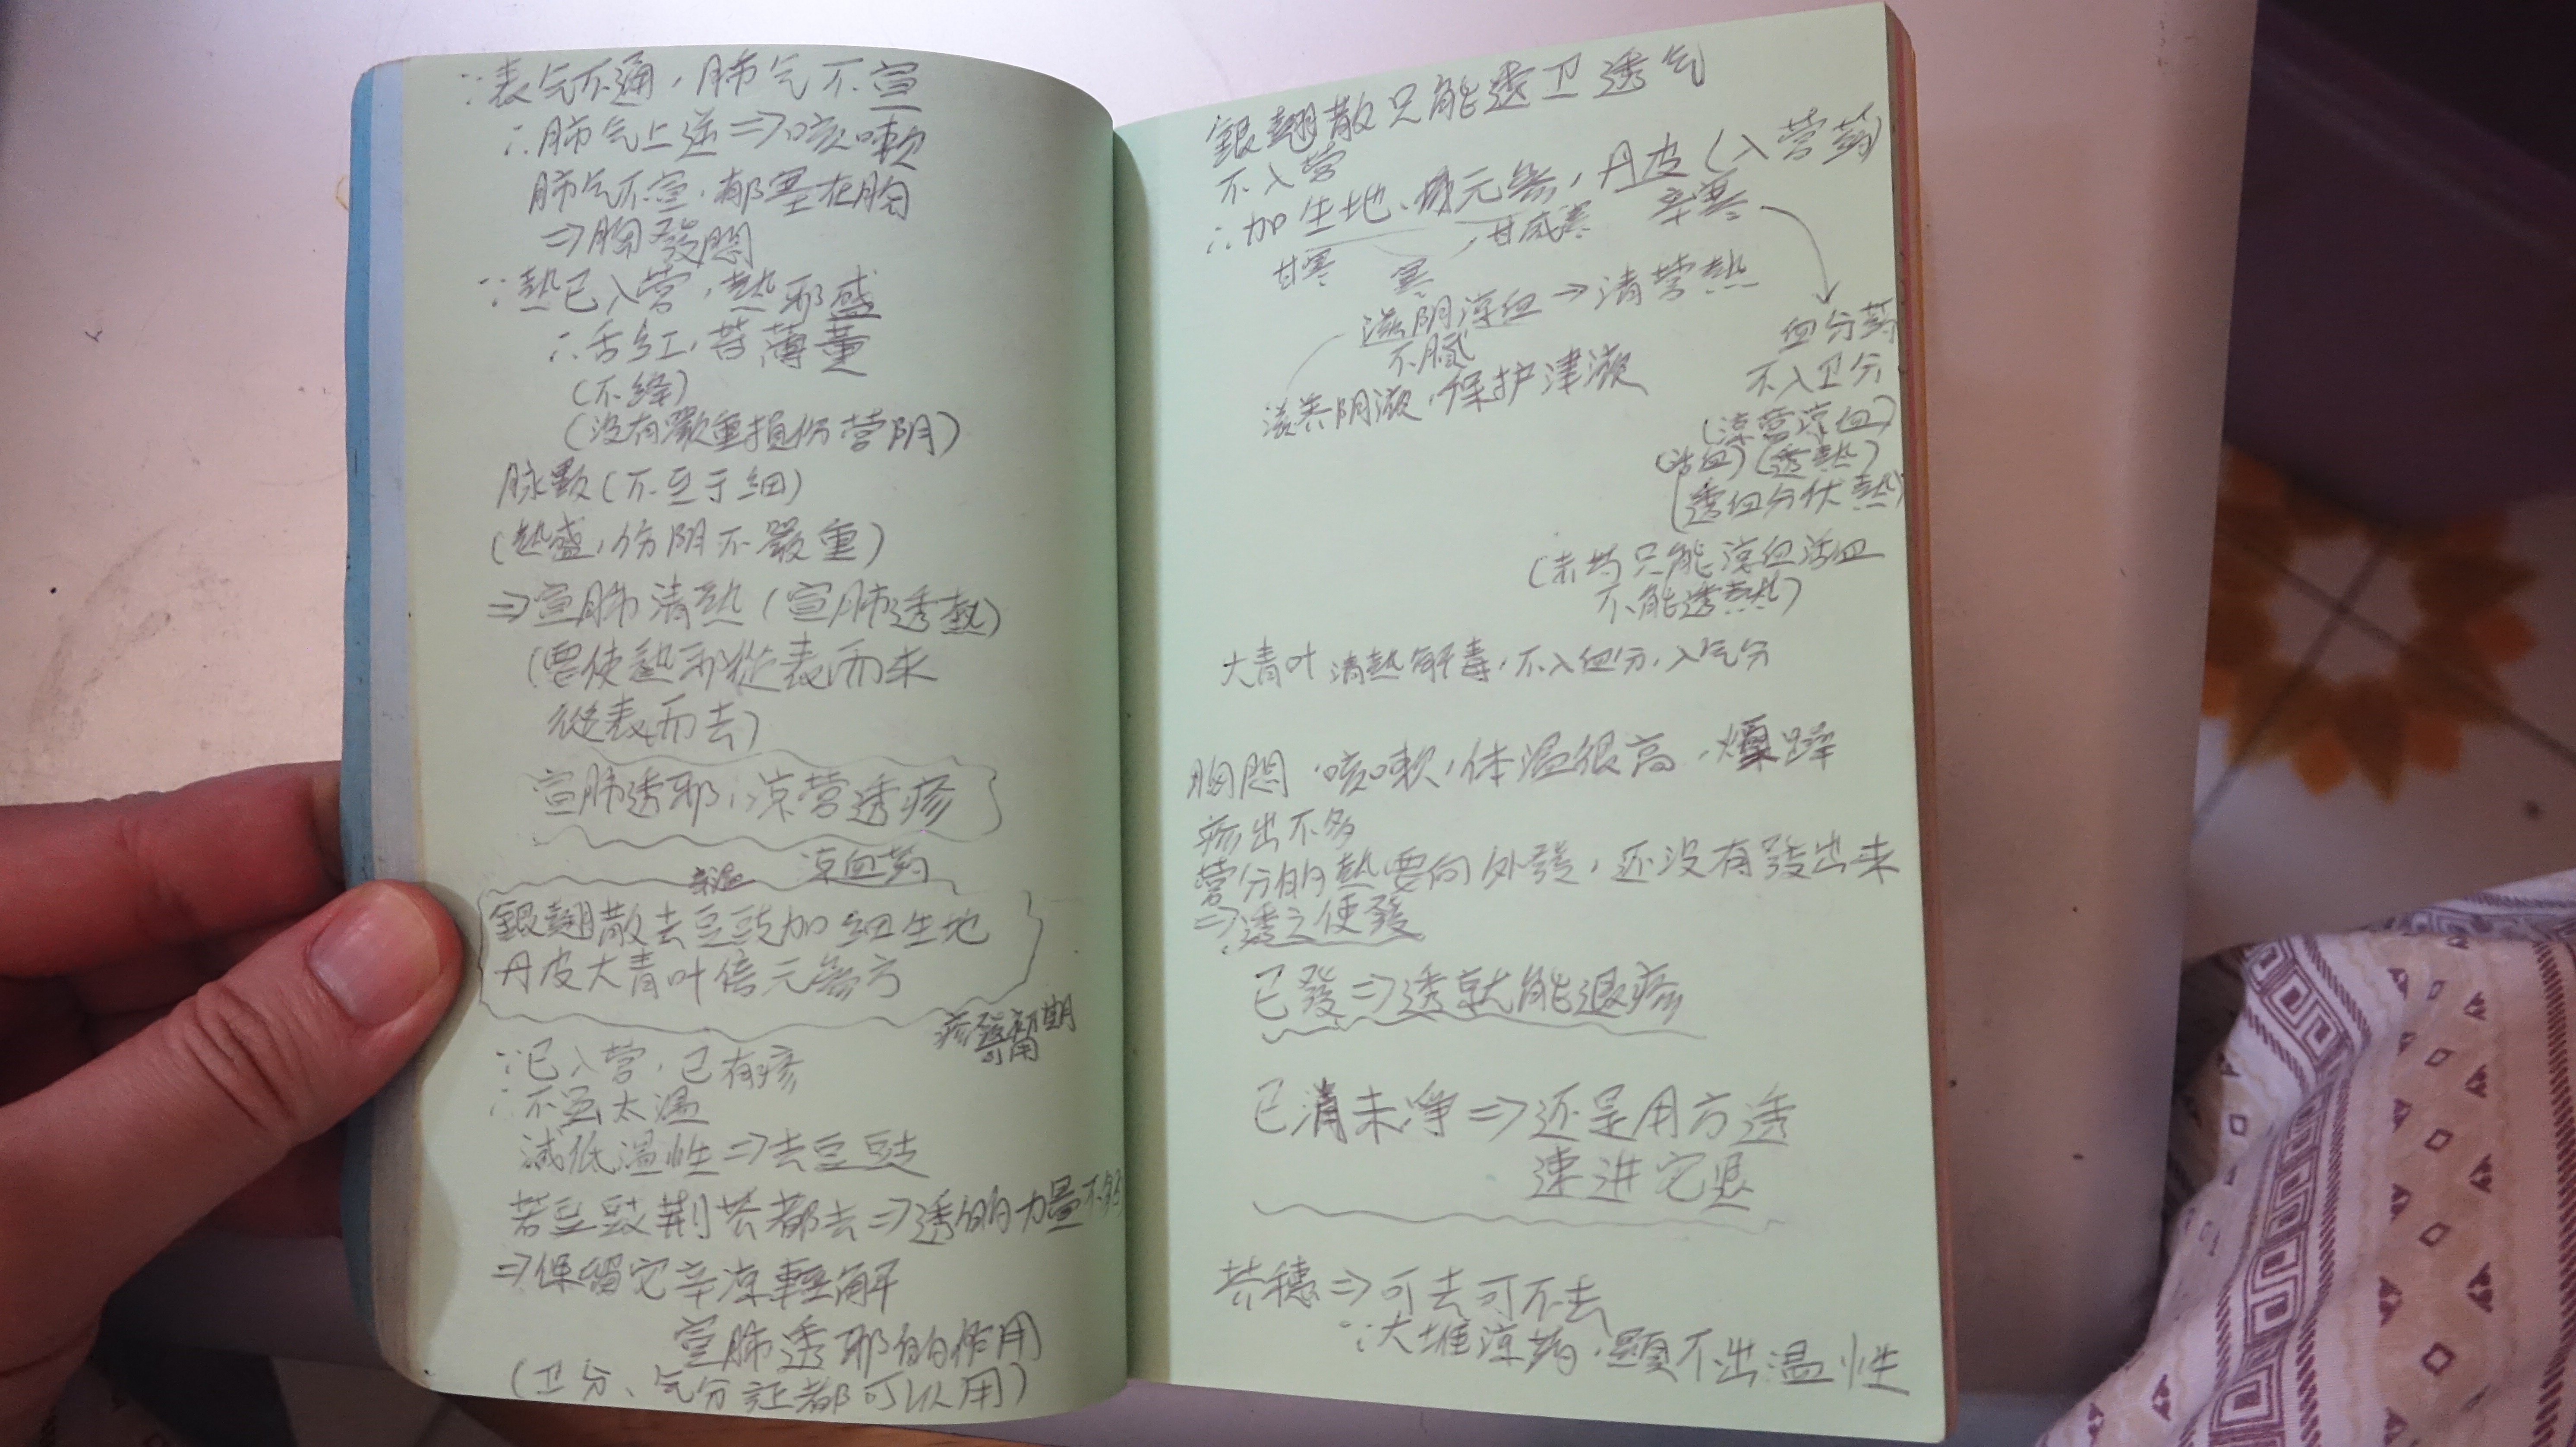 ∵表气不通，肺气不宣
∴肺气上逆⇒咳嗽
肺气不宣，郁塁在胸
⇒胸發悶
∵熱已入营，熱邪盛
∴舌红，苔薄黄
(不绛)
(没有嚴重損伤营阴)
脉數(不至于細)
(熱盛，伤阴不嚴重)
⇒宣肺清熱(宣肺透熱)
(要使熱邪從表而来
從表而去)
宣肺透邪，涼营透疹
辛温 凉血药
銀翹散去豆豉加細生地
丹皮大青叶倍元参方
疹發初期
可用
∵已入营，已有疹
∴不宜太温
減低温性⇒去豆豉
若豆豉荆芥都去⇒透的力量不够
⇒保留它辛凉輕解
宣肺透邪的作用
(卫分、气分証都可以用)
銀翹散只能透卫透气
不入营
∴加生地、元参，丹皮(入营药)
甘寒 寒 甘咸寒 辛寒
滋阴涼血→清营熱
不膩
滋养阴液，保护津液
血分药
不入卫分
(涼营涼血)
(活血)(透熱)
(透血分伏熱)
(赤芍只能涼血活血
不能透熱)
大青叶 清熱解毒，不入血分，入气分
胸悶，咳嗽，体温很高，煩躁
疹出不多
营分的熱要向外發，还没有發出来
⇒透之使發
已發⇒透就能退疹
已消未净⇒还是用方透
速进它退
芥穗⇒可去可不去
∵大堆涼药，顕不出温性